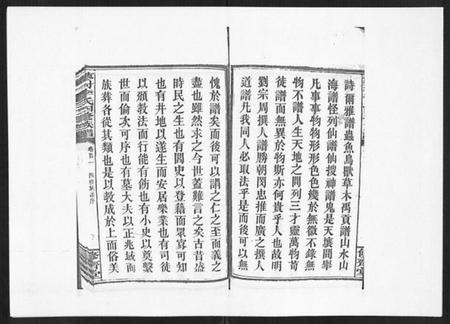 詩爾雅譜蟲魚鳥獸草木禹貢譜山水山
海譜怪列仙譜仙搜神譜鬼是天壤間舉
凡事事物物形形色色幾於無微不錄無
物不譜人生天地之間列三才靈萬物苟
徒譜而無異於物斯亦何貴乎人也故明
劉宗周撰人譜勝朝閔忠推而廣之撰人
道譜凡我同人必取法乎是而後可以無
愧於譜而後可以謂之仁之至而義之
盡也雖然求之今世蓋難言之矣古昔盛
時民之生也有閭史以登籍而眾寡可知
也有井地以遂生而安居樂業也有司徒
以頒教法而行能有飭也有小史以奠繫
世而倫次可序也有墓大夫以正兆域而
族葬各從其類也是以教成於上而俗美
卷首一